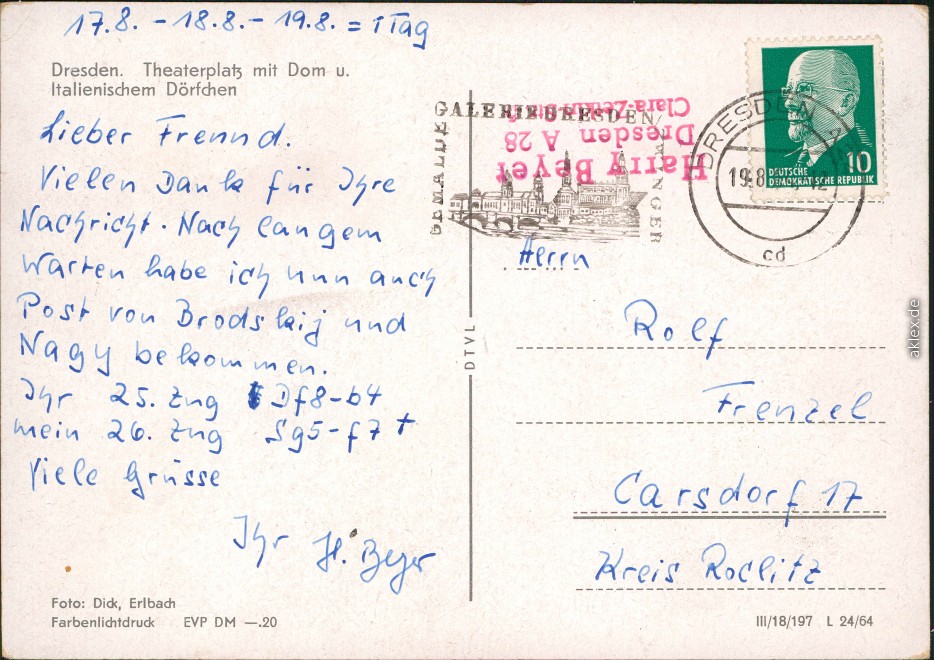 17.8. - 18.8. - 19.8. = 1 Tag
Dresden. Theaterplatz mit Dom u.
Italienischem Dörfchen
Lieber Freund.
Vielen Dank für Ihre
Nachricht. Nach langem
Warten habe ich nun auch
Post von Brodskij und
Nagy bekommen.
Ihr 25. Zug Df8-b4
mein 26. Zug Sg5-f7 +
Viele Grüsse
Ihr H. Beyer
Foto: Dick, Erlbach
Farbenlichtdruck EVP DM —.20
DTVL
GEMÄLDE GALERIE DRESDEN / ZWINGER
Harry Beyer
Dresden A 28
Clara-Zetkin-Str.
DRESDEN
19.8
cd
10
DEUTSCHE
DEMOKRATISCHE REPUBLIK
Herrn
Rolf
Frenzel
Carsdorf 17
Kreis Roclitz
III/18/197 L 24/64
aklex.de